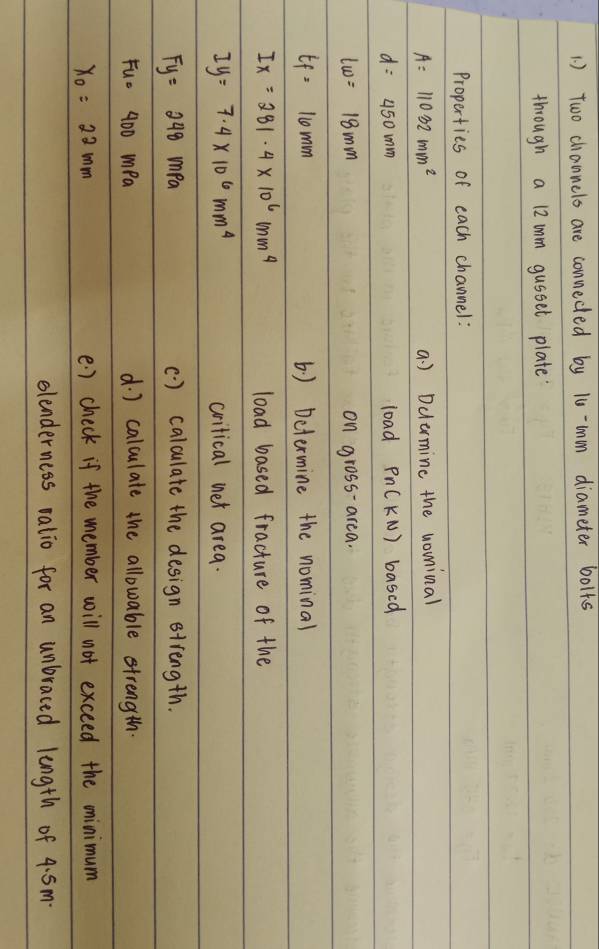 1.) Two channels are connected by 16-mm diameter bolts
through a 12mm gusset plate.
Properties of each channel:
A= 11032 mm²
d= 450 mm
tw= 18mm
tf= 16mm
Ix = 281.4 x 10⁶ mm⁴
Iy= 7.4 x 10⁶ mm⁴
Fy= 248 mpa
Fu= 400 mpa
x0= 22mm
a.) Determine the nominal
load Pn(KN) based
on gross-area.
b.) Determine the nominal
load based fracture of the
critical net area.
c.) calculate the design strength.
d.) calculate the allowable strength.
e.) check if the member will not exceed the minimum
slenderness ratio for an unbraced length of 4.5m.